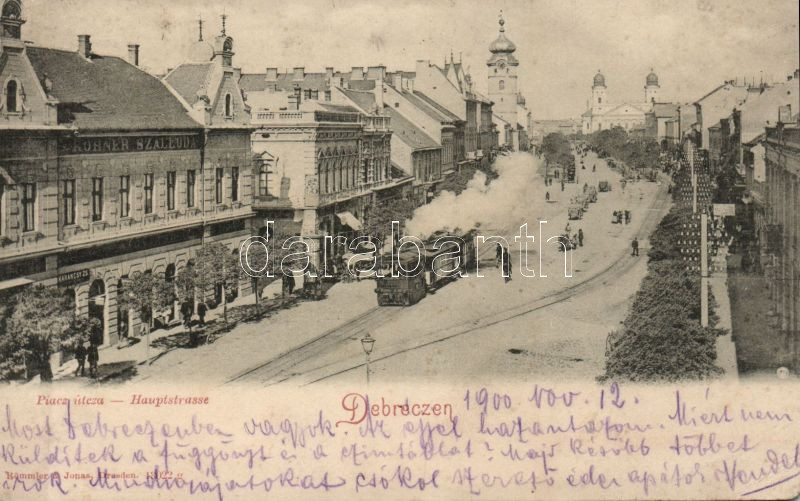 KÖHNER SZÁLLODA
HARANGI ZS.
darabanth
Piacz útcza — Hauptstrasse
Debreczen
1900 Nov. 12.
Most Debreczenben vagyok. Az éjjel hazautazom. Miért nem
küldítek a függönyt és a czímtáblát? Majd később többet
írok. Mindnyájatokat csókol szerető édes apátok Vendel
Römmler & Jonas, Dresden. 13922 g